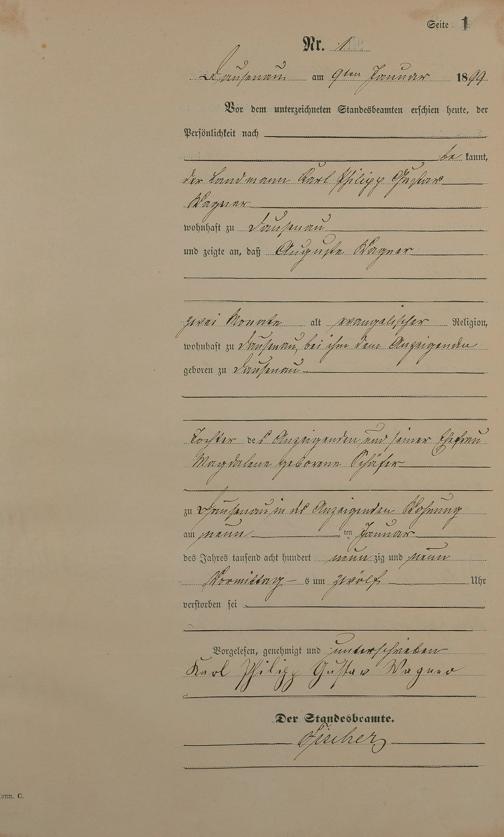 Seite 1
Nr. 1
Dausenau am 9ten Januar 1899
Vor dem unterzeichneten Standesbeamten erschien heute, der
Persönlichkeit nach
be kannt,
der Landmann Karl Philipp Gustav
Wagner
wohnhaft zu Dausenau
und zeigte an, daß Auguste Wagner
zwei Monate alt evangelischer Religion,
wohnhaft zu Dausenau, bei ihm dem Anzeigenden
geboren zu Dausenau
Tochter des Anzeigenden und seiner Ehefrau
Magdalene geborene Schäfer
zu Dausenau, in des Anzeigenden Wohnung
am neun ten Januar
des Jahres tausend acht hundert neun zig und neun
Vormittag s um zwölf Uhr
verstorben sei
Vorgelesen, genehmigt und unterschrieben
Karl Philipp Gustav Wagner
Der Standesbeamte.
Fischer